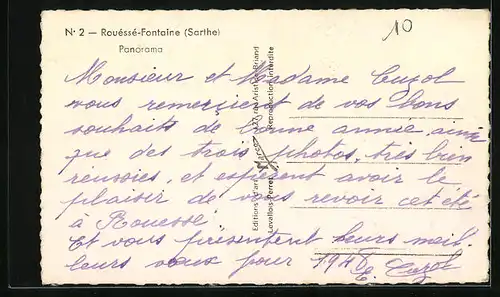 N° 2 — Rouéssé-Fontaine (Sarthe)
Panorama
10
Monsieur et Madame Cuzol
vous remercient de vos bons
souhaits de bonne année, ainsi
que des trois photos, très bien
réussies, et espèrent avoir le
plaisir de vous revoir cet été
à Rouessé.
Et vous présentent leurs meil-
leurs vœux pour 194
Editions d'art
Aristide-Briand
Levallois-Perret
Reproduction interdite